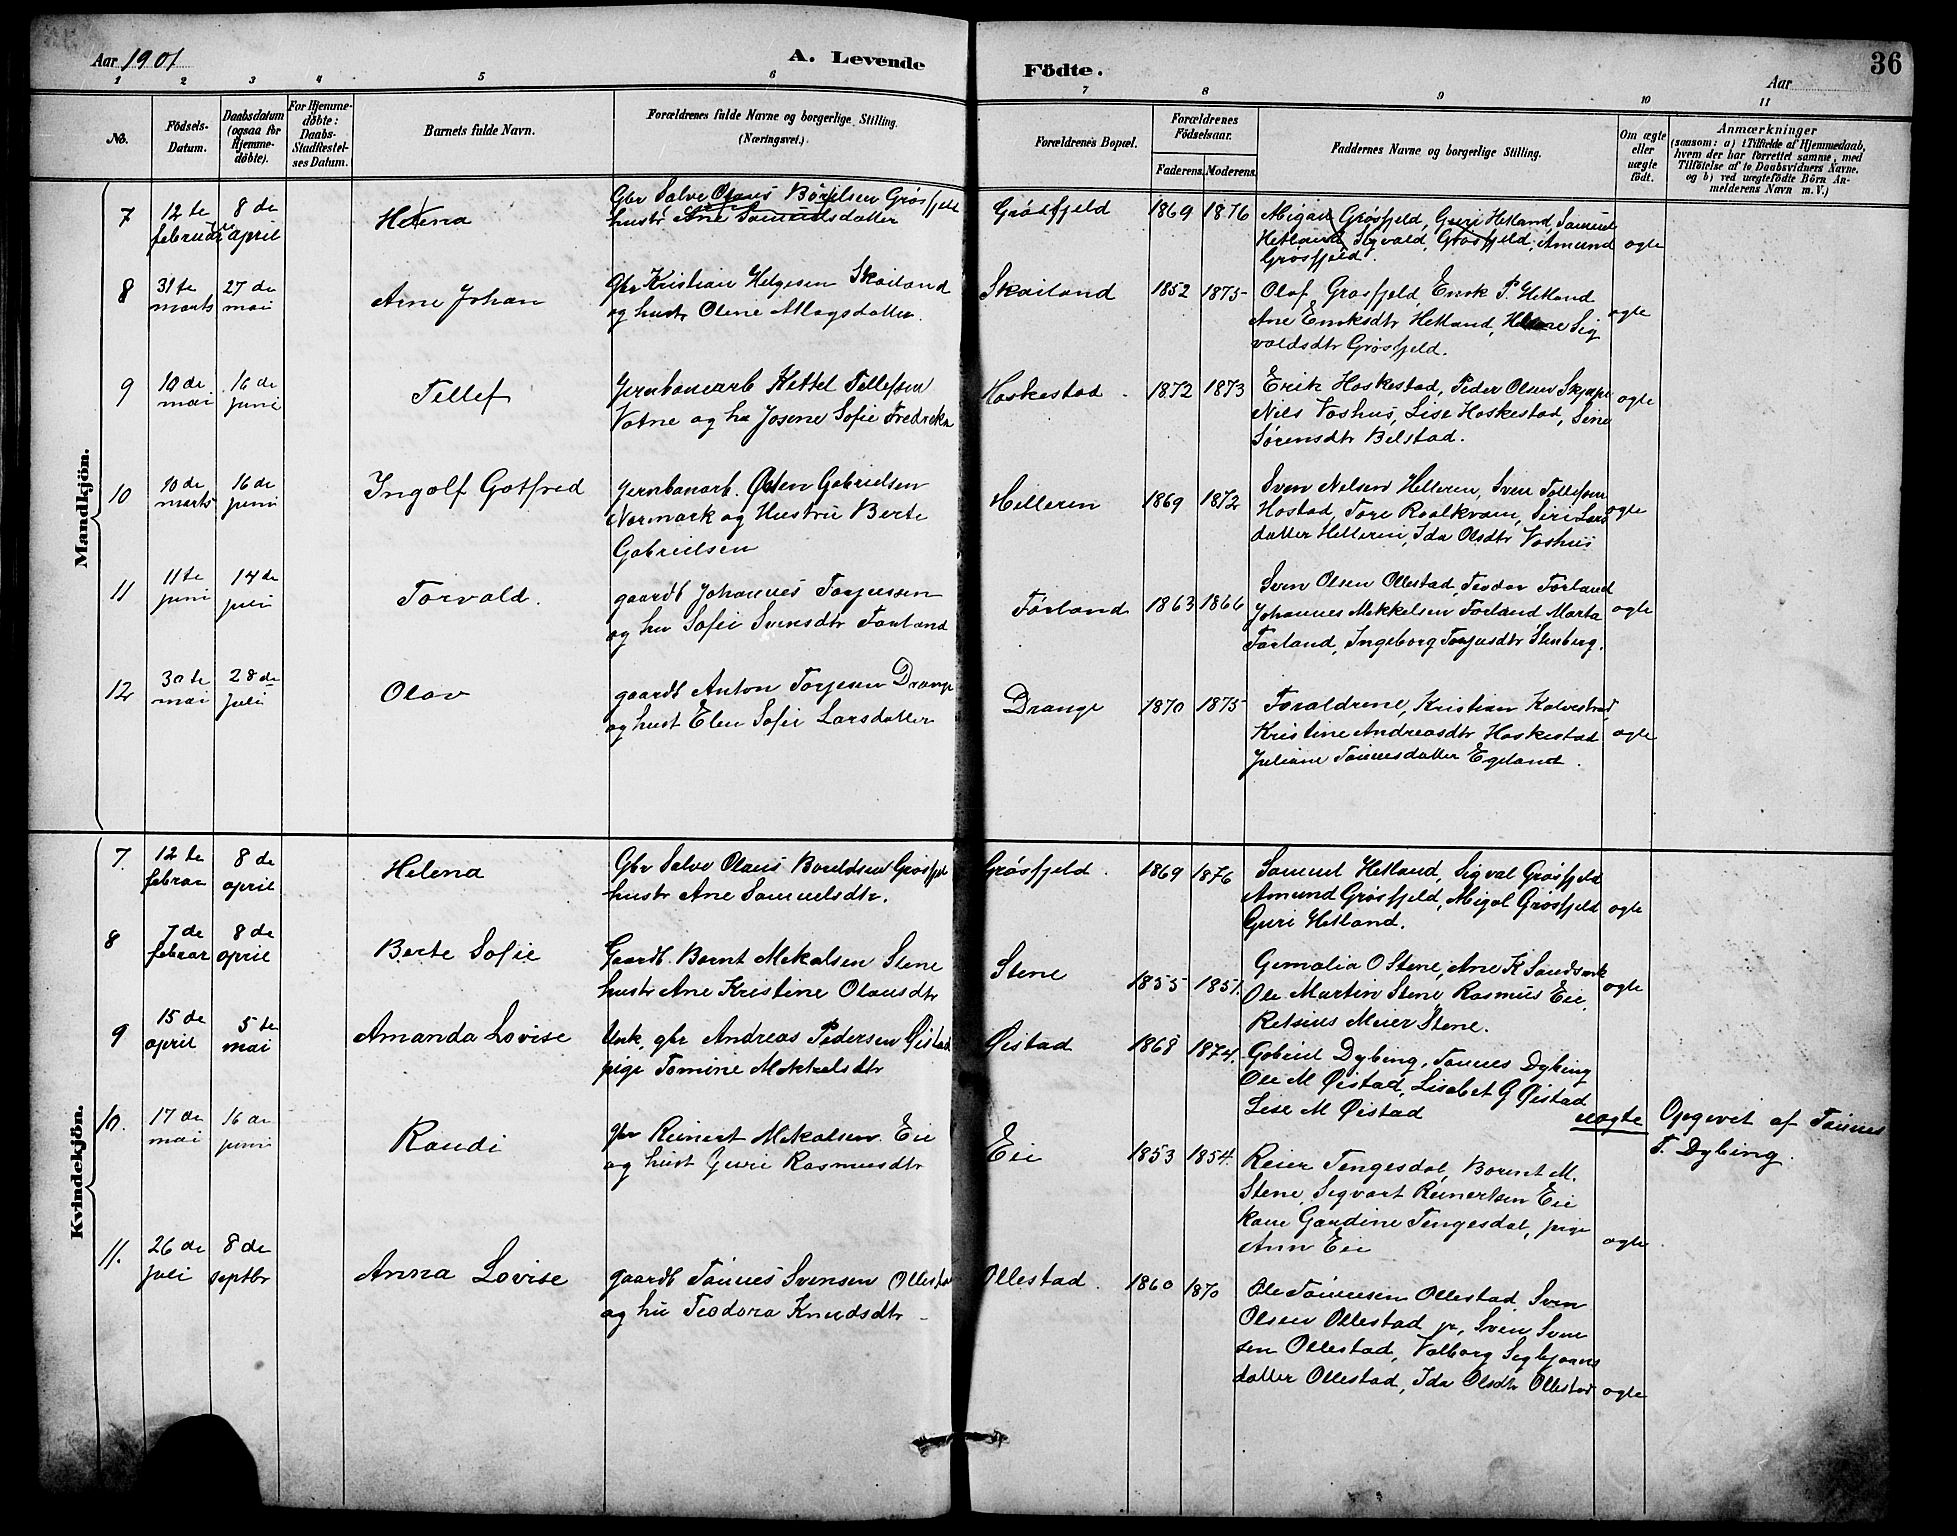 Aar 1901
A. Levende
Födte.
Aar
36
1 2 3 4 5 6 7 8 9 10 11
No.
Födsels-
Datum.
Daabsdatum
(ogsaa for
Hjemme-
døbte).
For Hjemme-
døbte:
Daabs-
Stadfestel-
ses Datum.
Barnets fulde Navn.
Forældrenes fulde Navne og borgerlige Stilling.
(Næringsvei.)
Forældrenes Bopæl.
Forældrenes
Födselsaar.
Faderens.
Moderens.
Faddernes Navne og borgerlige Stilling.
Om ægte
eller
uægte
født.
Anmærkninger
(saasom: a) i Tilfælde af Hjemmedaab,
hvem der har forrettet samme, med
Tilföielse af to Daabsvidners Navne.
og b) ved uægtefödte Börn An-
melderens Navn m. V.)
Mandkjön.
7
12 te
februar
8 de
april
Helena
Gbr Salve Olaus Grøsfjeld
hustr Ane Samuelsdatter
Grøsfjeld
1869
1876
Migal Grøsfjeld, Guri Hetland, Samuel
Hetland Sigvald, Grøsfjeld, Amund
Grøsfjeld.
ægte
8
31 te
marts
27 de
mai
Arne Johan
Gbr Kristian Helgesen Skailand
og hustr Olene Aslagsdatter.
Skailand
1852
1875
Olaf Grøsfjeld, Enok P. Hetland
Ane Enoksdtr Hetland, Sig
valdsdtr Grøsfjeld.
ægte
9
10 de
mai
16 de
juni
Tellef
Jernbanearb Kettel Tellefsen
Votne og hu Josene Sofie Fredreka
Hoskestad.
1872
1873
Erik Hoskestad, Peder Olsen
Nils Voshus, Lise Hoskestad, Sine
Sørensdtr Bilstad.
ægte
10
10 de
marts
16 de
juni
Ingolf Gotfred
Jernbanarb. Østen Gabrielsen
Normark og Hustru Berte
Gabrielsen
Helleren
1869
1872
Sven Nelsen Helleren, Sven Tollefsen
Hostad, Tore Roalkvam, Siri Lars
datter Helleren, Ida Olsdtr Voshus
ægte
11
11 te
juni
14 de
juli
Torvald.
gaardb Johannes Torjussen
og hu Sofie Svensdtr Førland
Førland
1863
1866
Sven Olsen Ollestad, Teodor Førland
Johannes Mikkelsen Førland Marta
Førland, Ingeborg Torjusdtr Stenberg.
ægte
12
30 te
mai
28 de
juli
Olav
gaardb Anton Torjesen Drange
og hust Elen Sofie Larsdatter
Drange
1870
1875
Foraldrene, Kristian Kalvestrad,
Kristine Andreasdtr Hoskestad
Juliane Tønnesdatter Egeland.
ægte
Kvindekjön.
7.
12 te
februar
8 de
april
Helena
Gbr Salve Olaus Grøsfjeld
hustr Ane Samuelsdtr.
Grøsfjeld.
1869
1876
Samuel Hetland, Sigval Grøsfjeld
Amund Grøsfjeld, Migal Grøsfjeld
Guri Hetland.
ægte
8
7 de
febrar
8 de
april
Berte Sofie
Gaardb. Bornt Mekalsen Stene
hustr Ane Kristine Olausdtr
Stene
1855
1857.
Gemalia O Stene, Ane K Sandsmk
Ole Martin Stene, Rasmus Eie,
Retsius Meier Stene.
ægte
9
15 de
april
5 te
mai
Amanda Lovise
Unk. gbr Andreas Pedersen Øistad
pige Tomine Mikkelsdtr
Øistad
1868
1874.
Gabriel Dybing, Tønnes Dybing
Ole M Øistad, Lisabet G Øistad
Lise M Øistad
uægte
Opgevet af Tønnes
T. Dybing.
10.
17 de
mai
16 de
juni
Randi
gbr Reinert Mekalsen Eie
og hust Guri Rasmusdtr
Eie
1853
1854.
Reier Tengesdal, Borent M.
Stene, Sigvart Reinertsen Eie
kone Gaudine Tengesdal, pige
Ann Eie
ægte
11.
26 de
juli
8 de
septbr
Anna Lovise
gaardb Tønnes Svensen Ollestad
og hu Teodora Knudsdtr
Ollestad.
1860
1870
Ole Tønnesen Ollestad, Sven
Olsen Ollestad jr, Sven Sven
sen Ollestad, Valborg Sigbjørns
datter Ollestad, Ida Olsdtr Ollestad
ægte